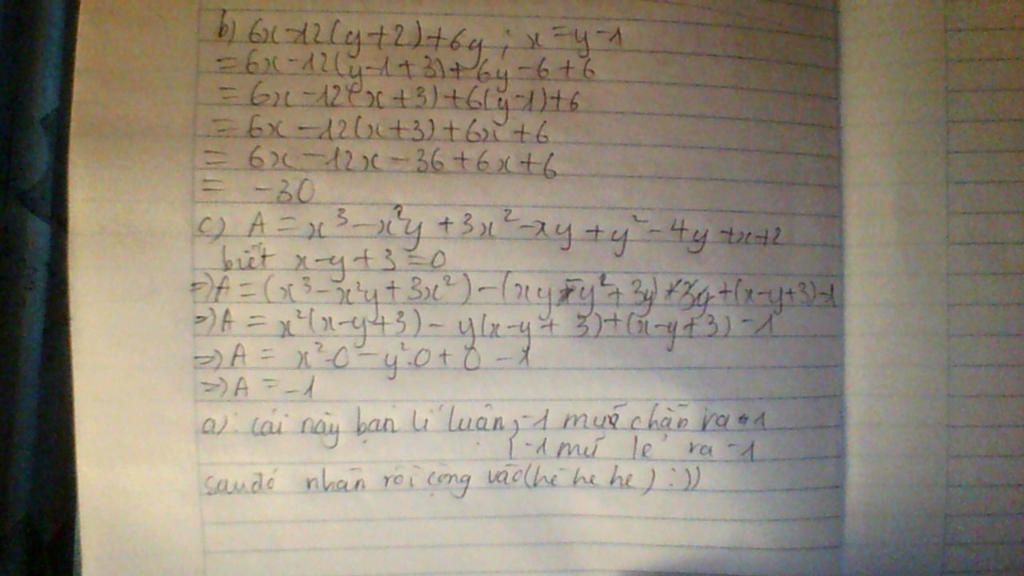 b) 6x - 12(y+2) + 6y ; x = y - 1
= 6x - 12(y-1+3) + 6y - 6 + 6
= 6x - 12(x+3) + 6(y-1) + 6
= 6x - 12(x+3) + 6x + 6
= 6x - 12x - 36 + 6x + 6
= -30
c) A = x³ - x²y + 3x² - xy + y² - 4y + x + 2
biết x - y + 3 = 0
=> A = (x³ - x²y + 3x²) - (xy - y² + 3y) + (x-y+3) - 1
=> A = x²(x-y+3) - y(x-y+3) + (x-y+3) - 1
=> A = x².0 - y².0 + 0 - 1
=> A = -1
a) cái này bạn lí luận, -1 mũ chẵn ra 1
-1 mũ lẻ ra -1
sau đó nhân rồi cộng vào (hè hè hè) :))